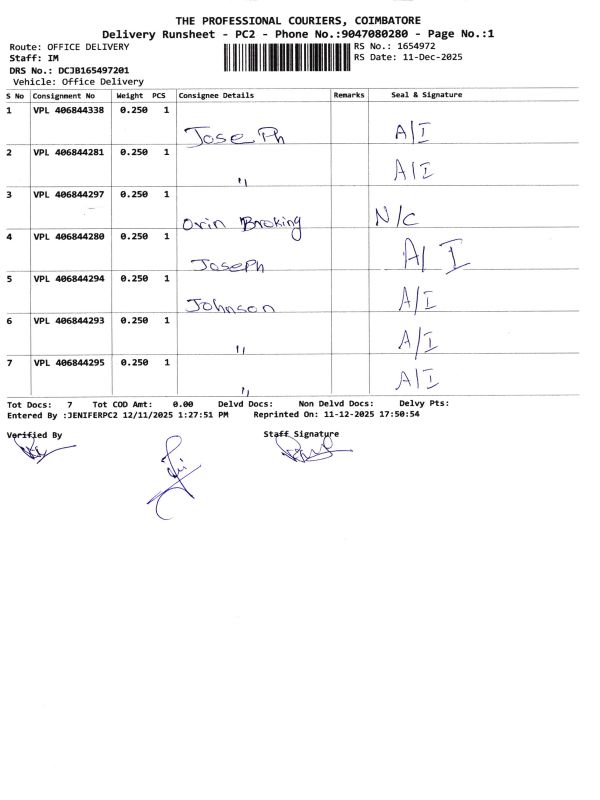 THE PROFESSIONAL COURIERS, COIMBATORE
Delivery Runsheet - PC2 - Phone No.:9047080280 - Page No.:1
Route: OFFICE DELIVERY RS No.: 1654972
Staff: IM RS Date: 11-Dec-2025
DRS No.: DCJB165497201
Vehicle: Office Delivery
S No Consignment No Weight PCS Consignee Details Remarks Seal & Signature
1 VPL 406844338 0.250 1 Joseph A/I
2 VPL 406844281 0.250 1 " A/I
3 VPL 406844297 0.250 1 Orin Broking N/c
4 VPL 406844280 0.250 1 Joseph A/I
5 VPL 406844294 0.250 1 Johnson A/I
6 VPL 406844293 0.250 1 " A/I
7 VPL 406844295 0.250 1 " A/I
Tot Docs: 7 Tot COD Amt: 0.00 Delvd Docs: Non Delvd Docs: Delvy Pts:
Entered By :JENIFERPC2 12/11/2025 1:27:51 PM Reprinted On: 11-12-2025 17:50:54
Verified By Staff Signature